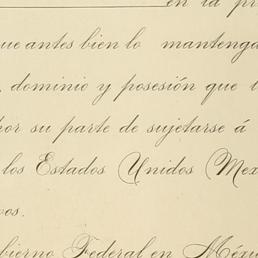 en la pr
que antes bien lo mantenga
, dominio y posesión que
por su parte de sujetarse á
los Estados Unidos Mex
vos.
bierno Federal en Méxi